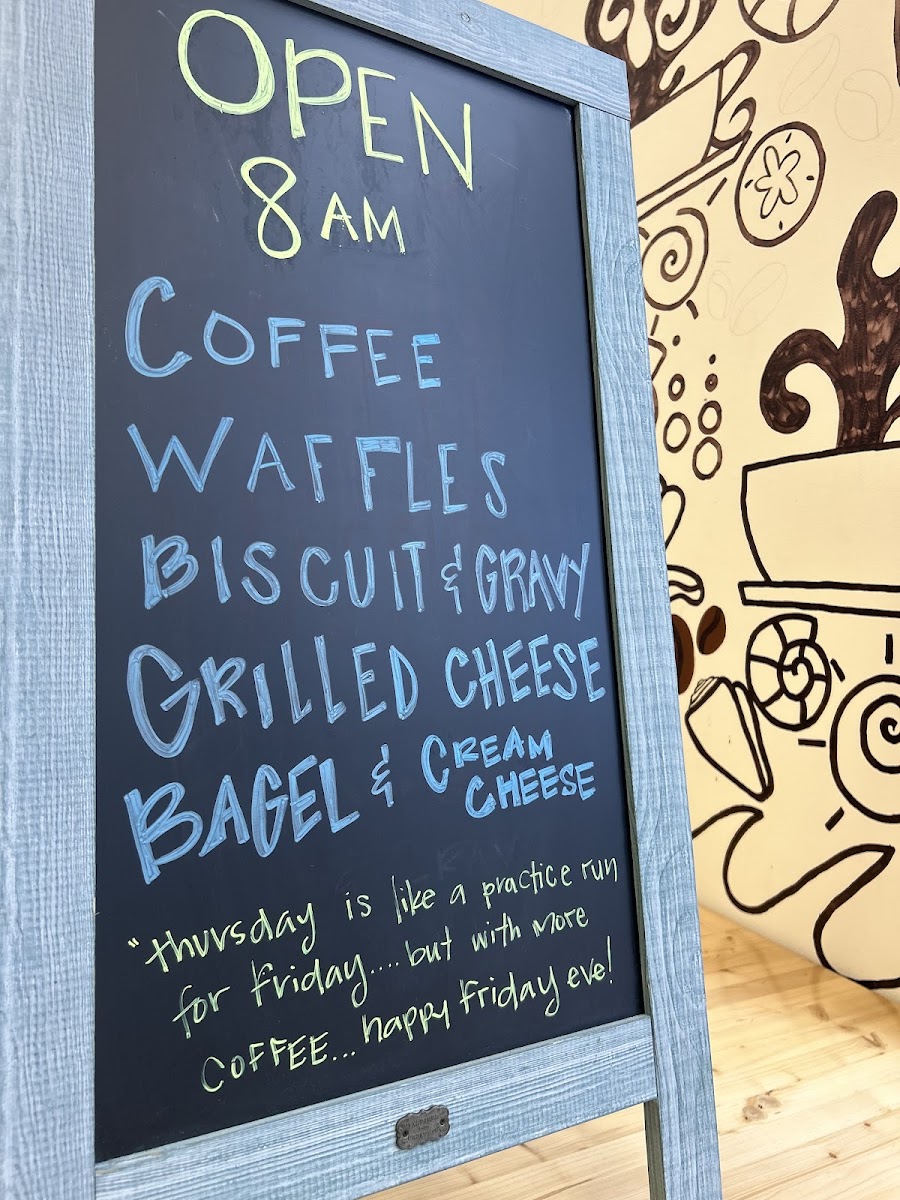 OPEN
8 AM
COFFEE
WAFFLES
BISCUIT & GRAVY
GRILLED CHEESE
BAGEL & CREAM
CHEESE
"thursday is like a practice run
for Friday....but with more
COFFEE...happy Friday eve!